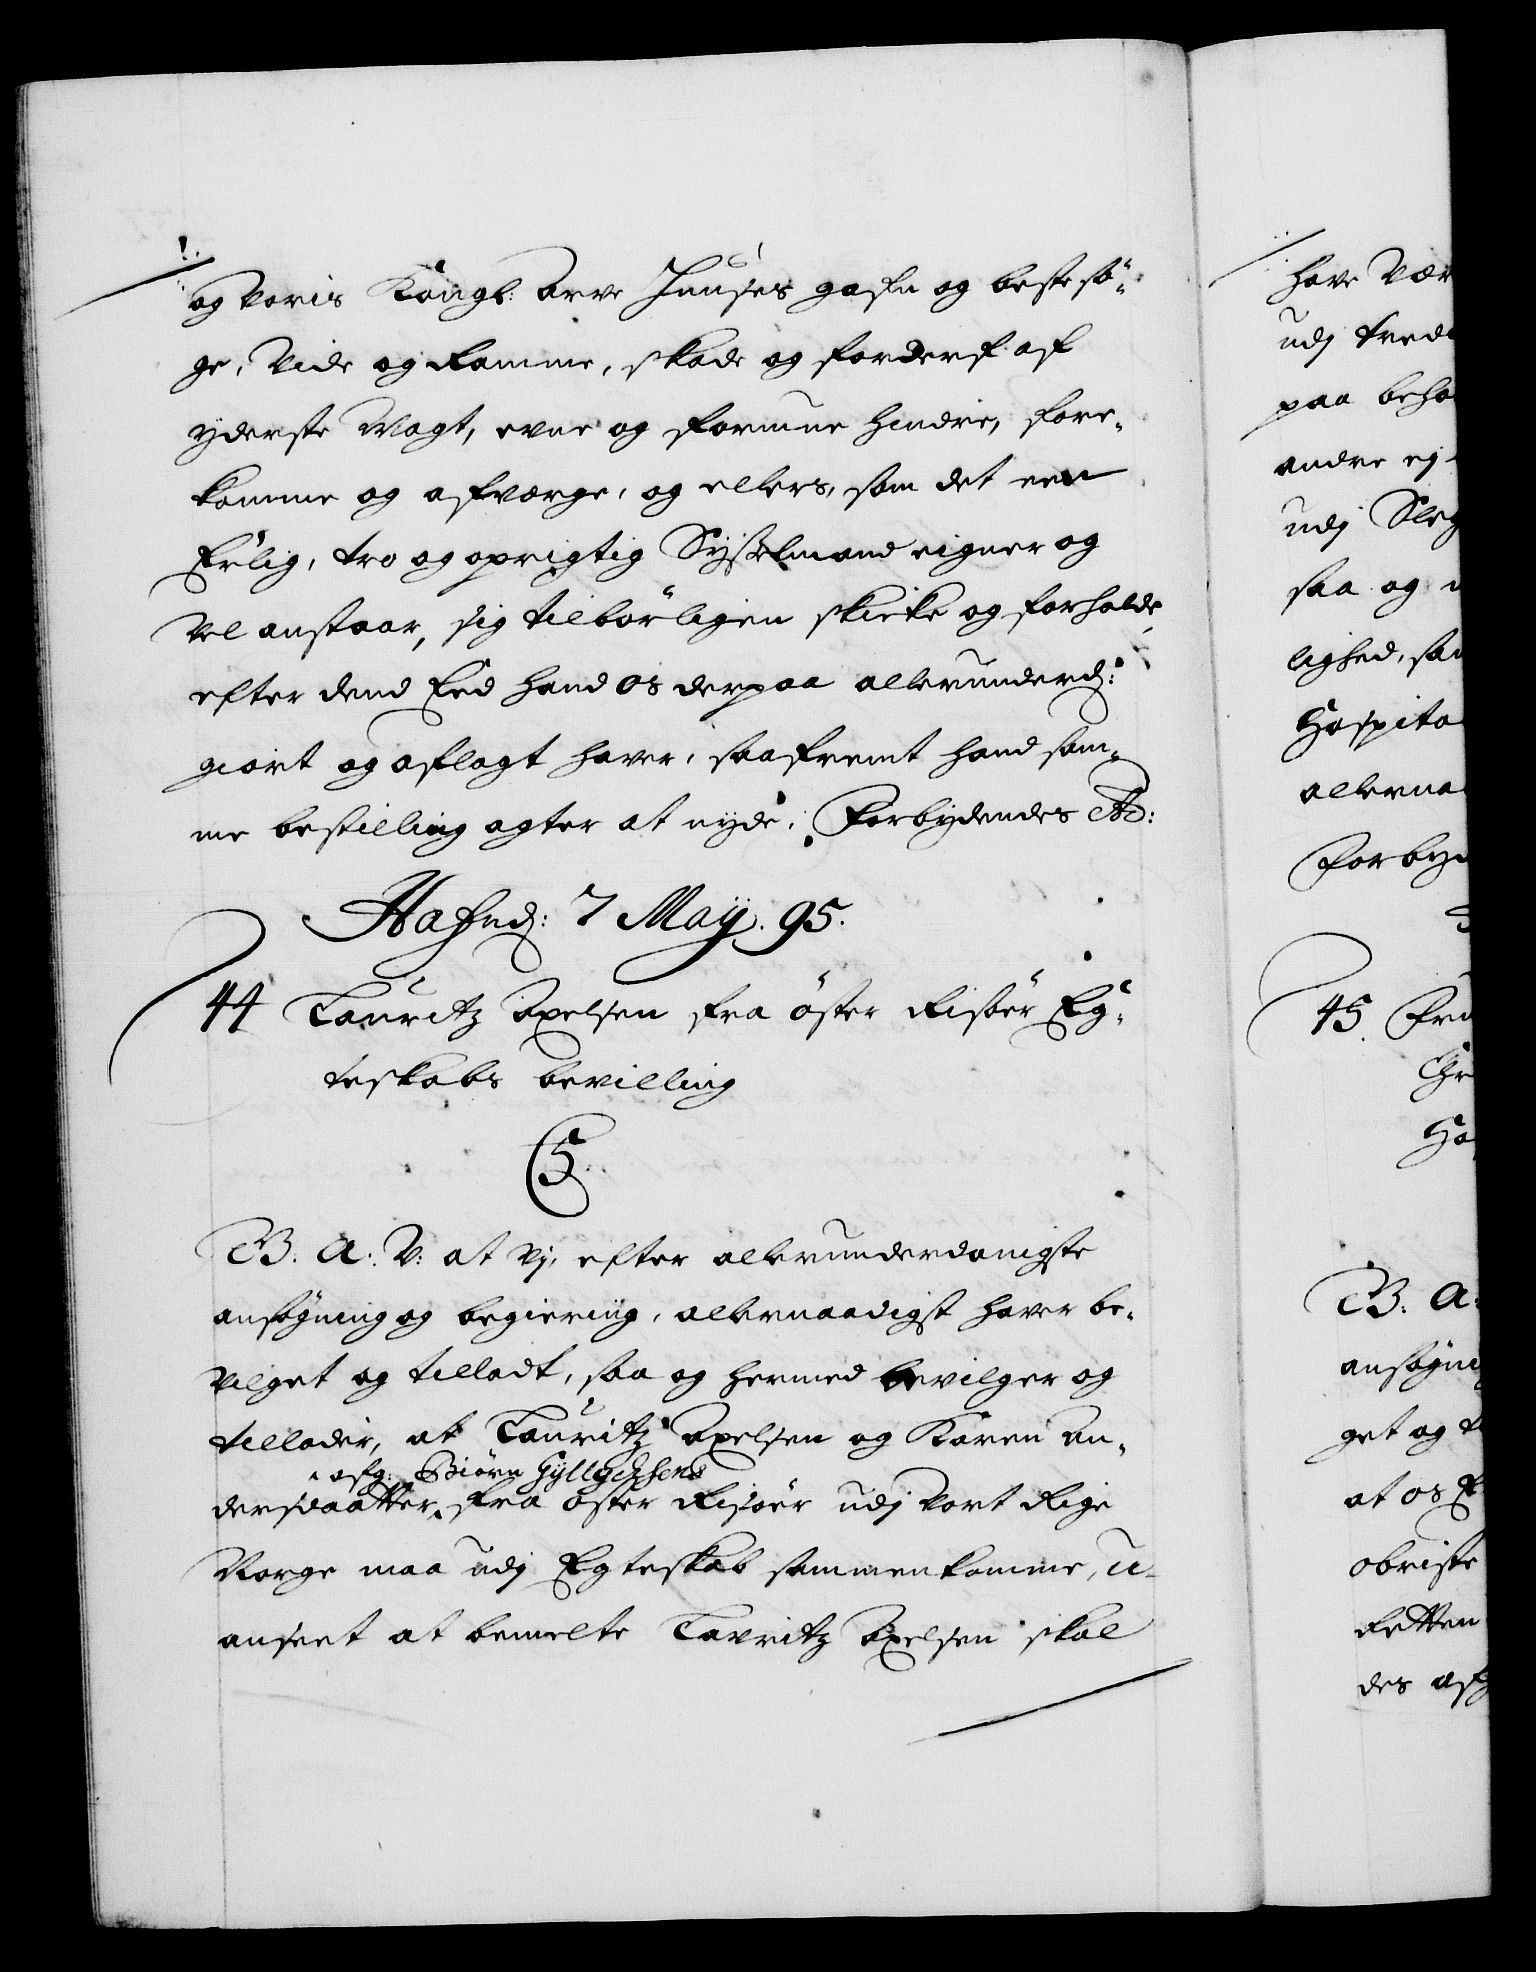 og voris Kongl: Arve Huuses gafn og beste sö-
ge, vide og ramme, skade og forderf af
yderste Magt, evne og formue hindre, fore-
komme og afværge, og ellers, som det een
Erlig, tro og oprigtig Sysselmand eigner og
vel anstaar, sig tilbörligen skicke og forholde,
efter dend Eed hand os derpaa allerunderd:
giort og aflagt haver, saafremt hand sam-
me bestilling agter at nyde, Forbydendes A:
Hafnd: 7 Maij. 95.
44 Lauritz Axelsen fra öster Risöer Eg-
teskabs bevilling
C5
G. A. V: at Vj, efter allerunderdanigste
ansögning og begiering, allernaadigst haver be-
vilget og tilladt, saa og hermed bevilger og
tillader, at Lauritz Axelsen og Karen An-
afg: Biörn Gyllichsens
dersdaatter fra öster Risöer udj vort Rige
Norge maa udj Egteskab sammenkomme, u-
anseet at bemelte Lavritz Axelsen skal
have Vær
udj tred
paa beho
andre ej
udj Sleg
saa og
lighed, sa
Hospita
allerna
Forbyd
45. Fr
Chr
Ho
G: A:
ansögni
get og t
at os E
obriste
Retten
des afg